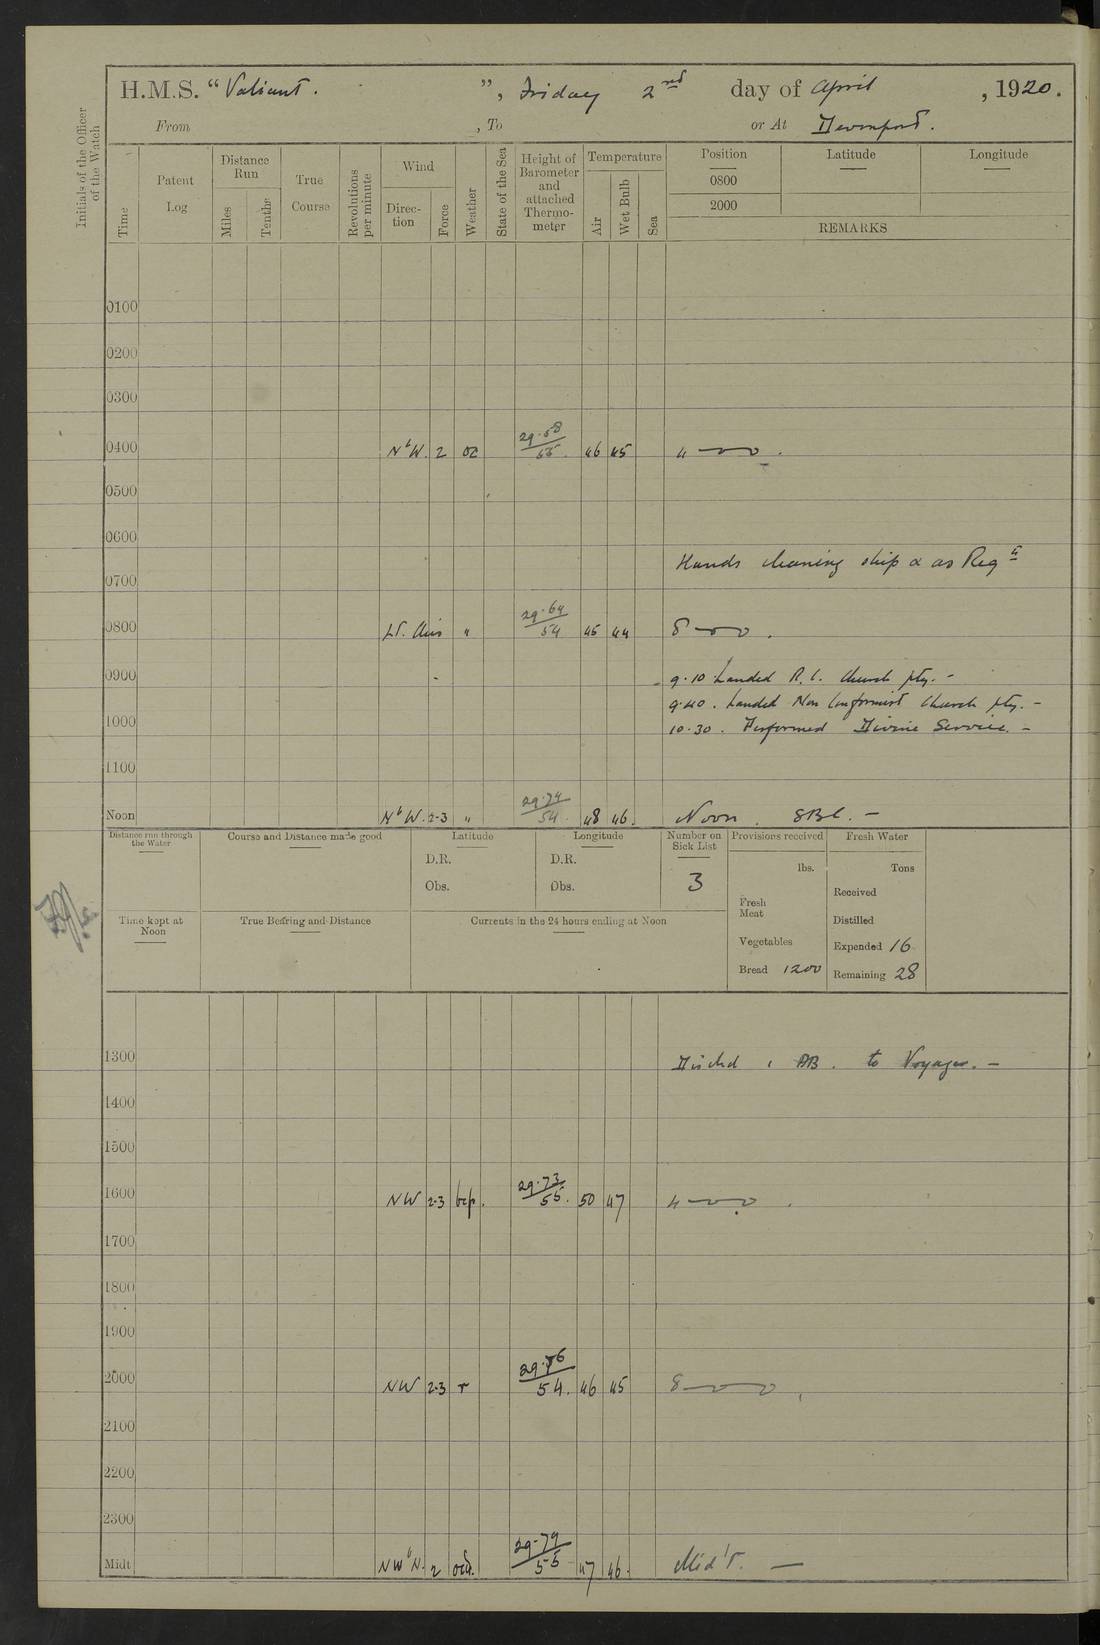 H.M.S. “ Valiant. ”, Friday 2nd day of April , 1920.
From , To or At Devonport.
Initials of the Officer of the Watch
Time
Patent Log
Distance Run
Miles
Tenths
True Course
Revolutions per minute
Wind
Direc-tion
Force
Weather
State of the Sea
Height of Barometer and attached Thermo-meter
Temperature
Air
Wet Bulb
Sea
Position Latitude Longitude
0800
2000
REMARKS
0100
0200
0300
0400 NbW. 2 oc 29.58/55. 46 45 4
0500
0600
Hands cleaning ship & as Reqd
0700
0800 Lt. Airs " 29.64/54 45 44 8
0900 9.10 Landed R.C. Church pty. -
9.40. Landed Non Conformist Church pty. -
1000 10.30. Performed Divine Service. -
1100
Noon NbW. 2-3 " 29.74/54. 48 46. Noon. -
Distance run through the Water
Course and Distance made good
Latitude
D.R.
Obs.
Longitude
D.R.
Obs.
Number on Sick List
3
Provisions received
lbs.
Fresh Meat
Vegetables
Bread 1200
Fresh Water
Tons
Received
Distilled
Expended 16
Remaining 28
Time kept at Noon
True Bearing and Distance
Currents in the 24 hours ending at Noon
1300 Dischd 1 AB. to Voyager. -
1400
1500
1600 NW 2-3 bcp. 29.73/55. 50 47 4
1700
1800
1900
2000 NW 2-3 r 29.76/54. 46 45 8
2100
2200
2300
Midt NWbN. 2 29.79/55 47 46. Mid't. -